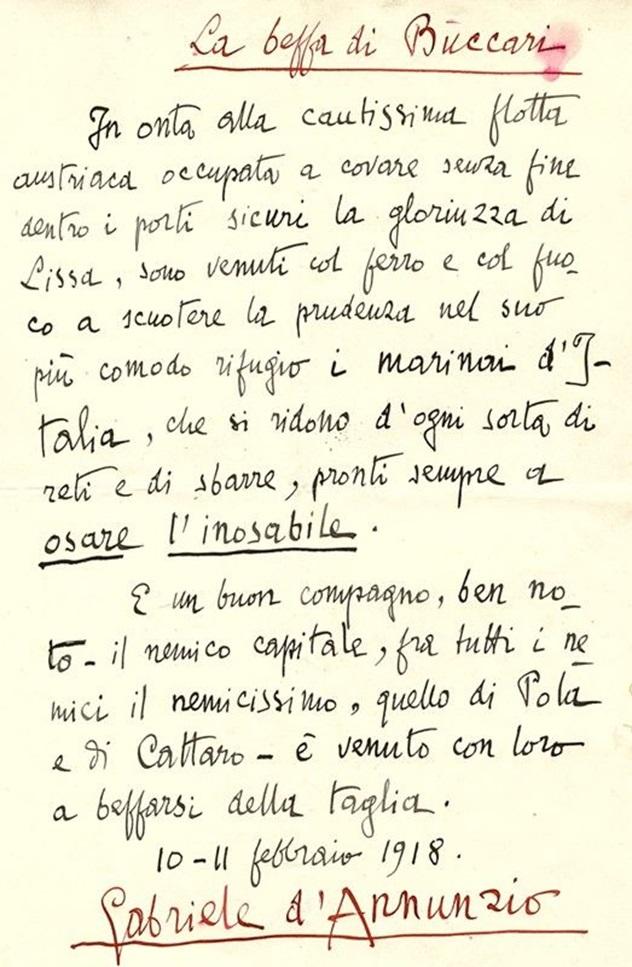 La beffa di Bùccari
In onta alla cautissima flotta
austriaca occupata a covare senza fine
dentro i porti sicuri la gloriuzza di
Lissa, sono venuti col ferro e col fuo-
co a scuotere la prudenza nel suo
più comodo rifugio i marinai d'I-
talia, che si ridono d'ogni sorta di
reti e di sbarre, pronti sempre a
osare l'inosabile.
E un buon compagno, ben no-
to - il nemico capitale, fra tutti i ne-
mici il nemicissimo, quello di Pola
e di Cattaro - è venuto con loro
a beffarsi della taglia.
10-11 febbraio 1918.
Gabriele d'Annunzio